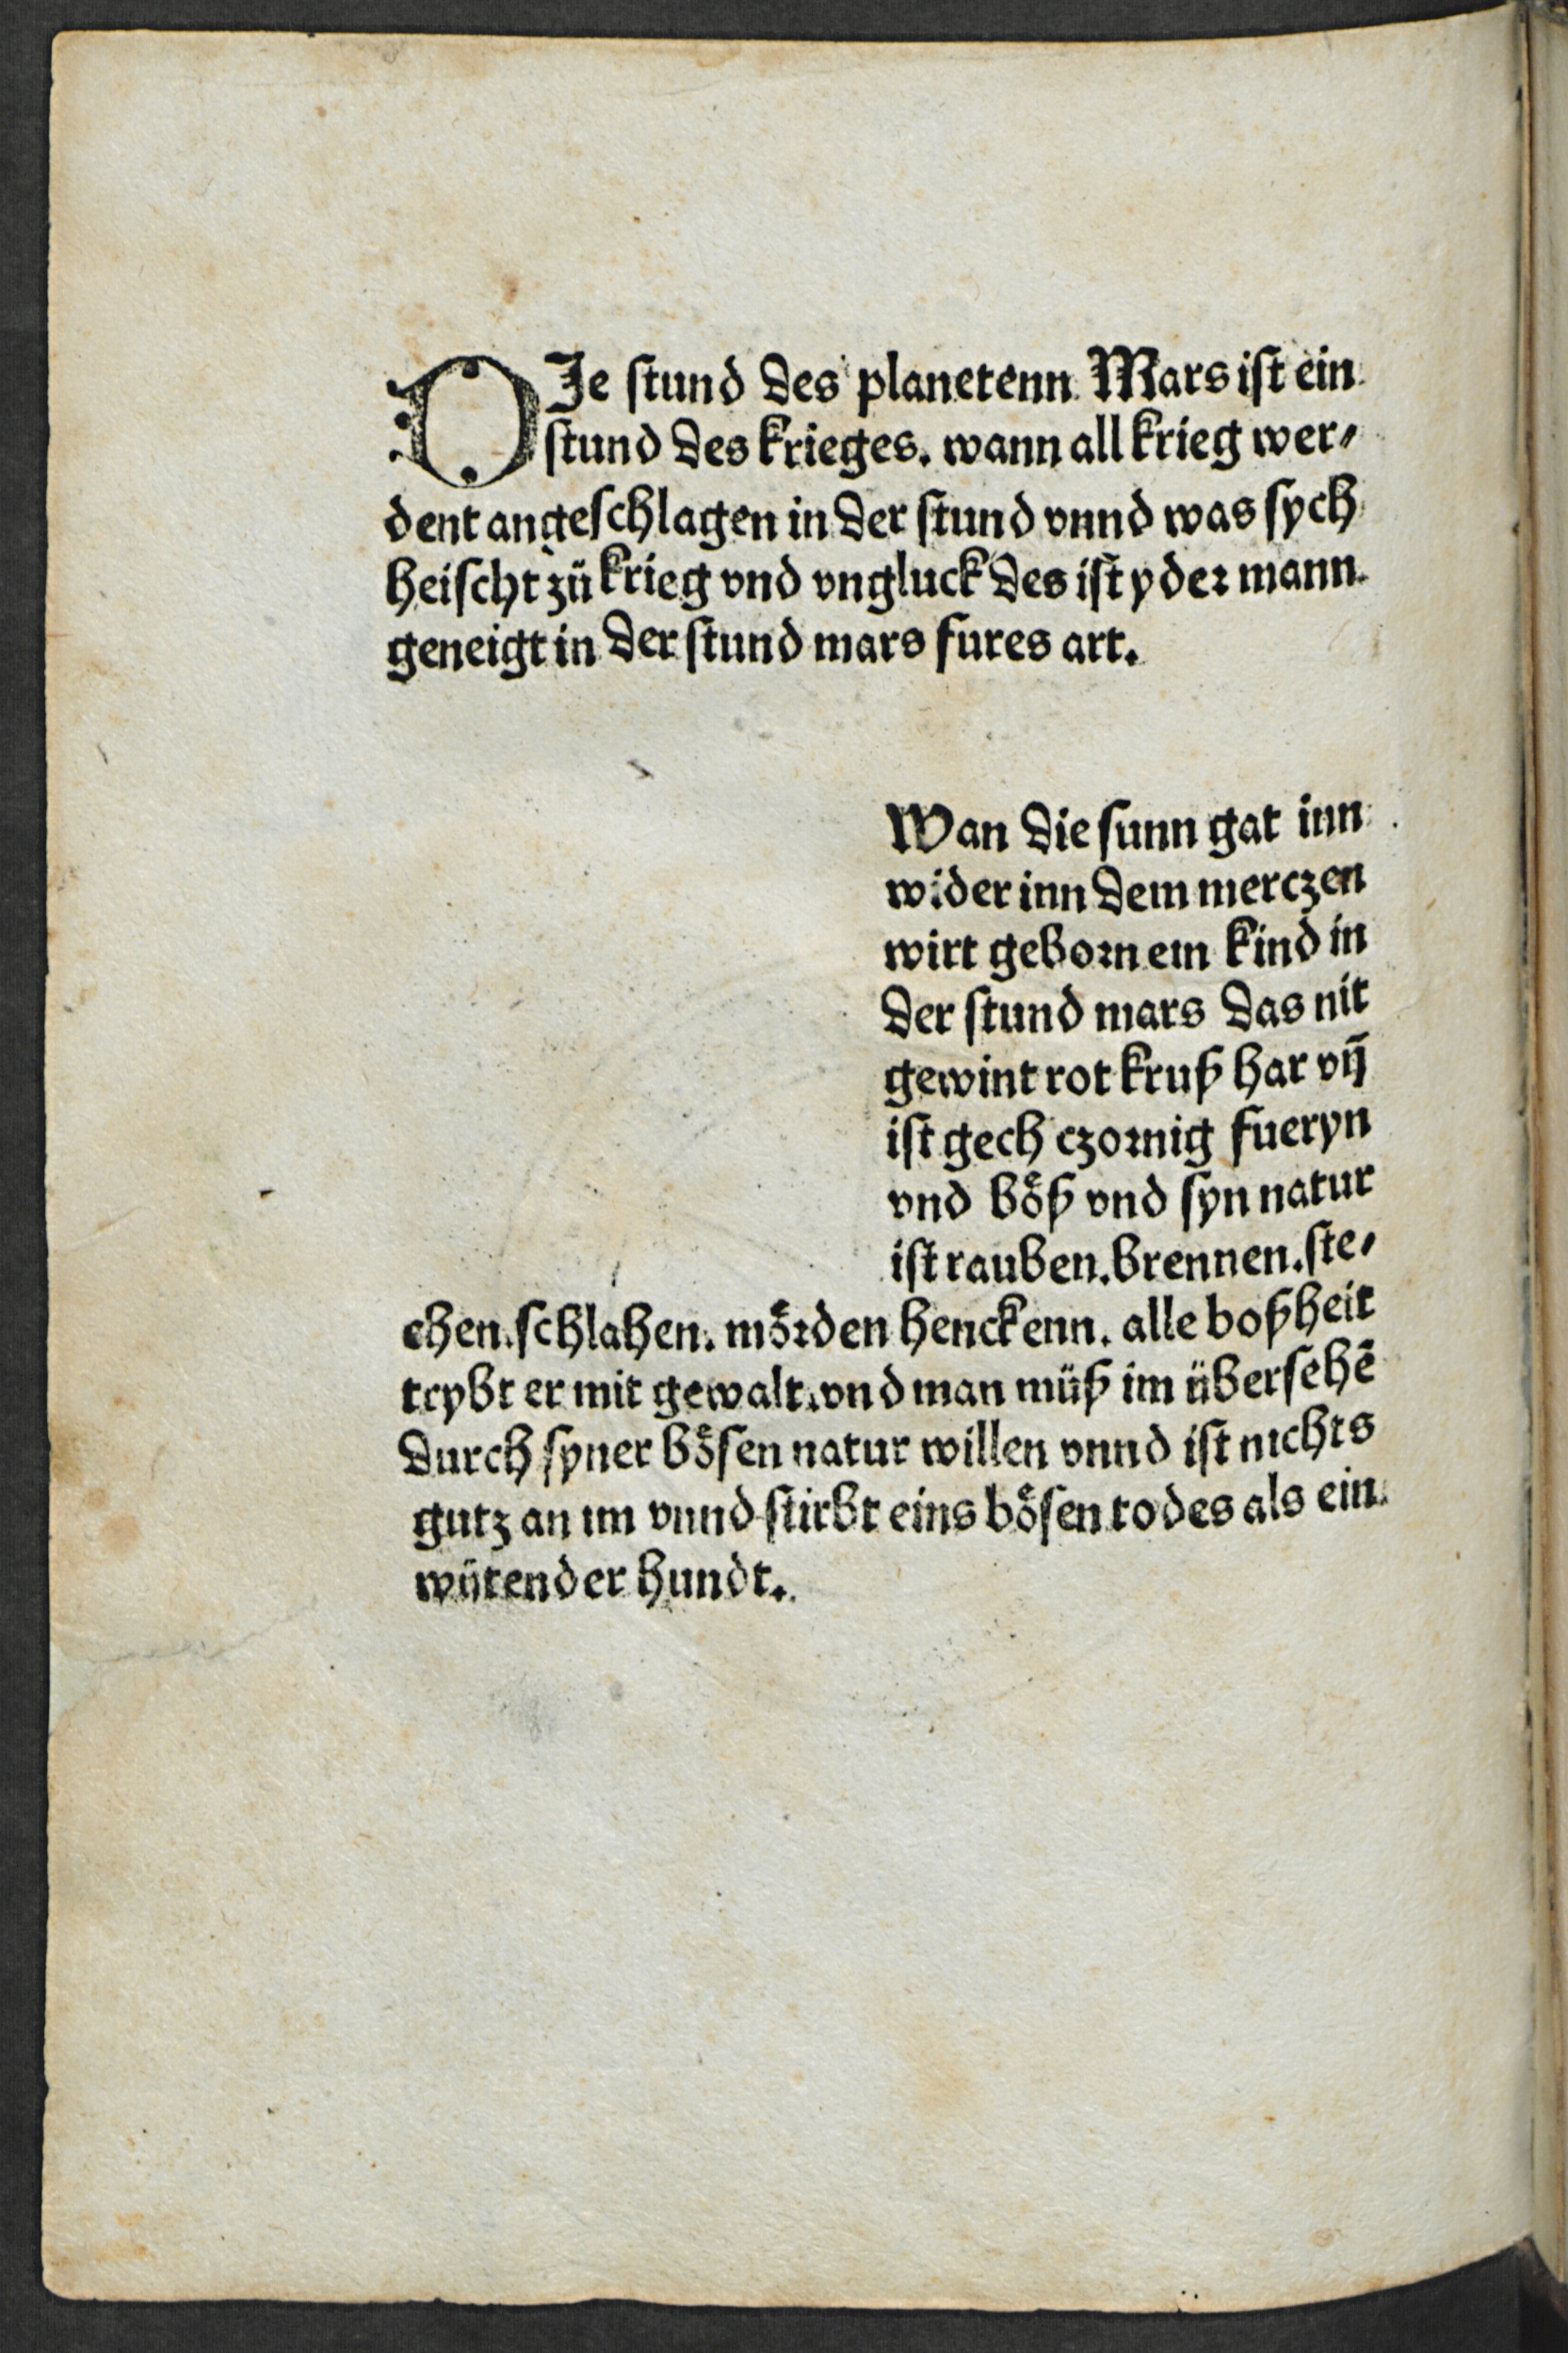 DJe ſtund des planetenn Mars iſt ein
ſtund des krieges. wann all krieg wer⸗
dent angeſchlagen in der ſtund vnnd was ſych
heiſcht zů krieg vnd vngluck des iſt yder mann
geneigt in der ſtund mars fures art.
Wan die ſunn gat inn
wider inn dem merczen
wirt geborn ein kind in
der ſtund mars das nit
gewint rot kruß har vñ
iſt gech czornig fueryn
vnd boͤß vnd ſyn natur
iſt rauben. brennen. ſte⸗
chen. ſchlahen. moͤrden henckenn. alle boßheit
trybt er mit gewalt. vnd man müß im überſehē
durch ſyner boͤſen natur willen vnnd iſt nichts
gutz an im vnnd ſtirbt eins boͤſen todes als ein
wütender hundt.